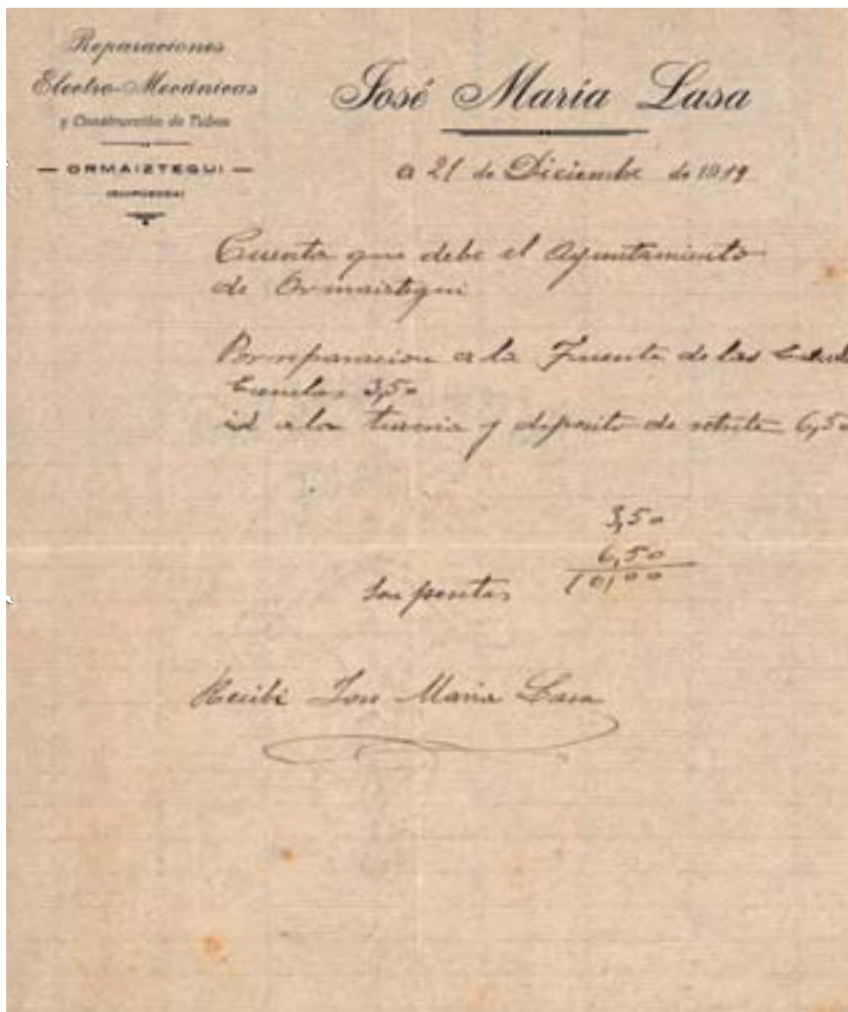 Reparaciones
Electro-Mecánicas
y Construcción de Tubos
ORMAIZTEGUI
(GUIPUZCOA)
José María Lasa
a 21 de Diciembre de 1919
Cuenta que debe el Ayuntamiento
de Ormaiztegui
Por reparacion a la Fuente de las
Escuelas 3,50
id a la y deposito de retrete 6,50
3,50
6,50
Son pesetas 10,00
Recibi Jose Maria Lasa